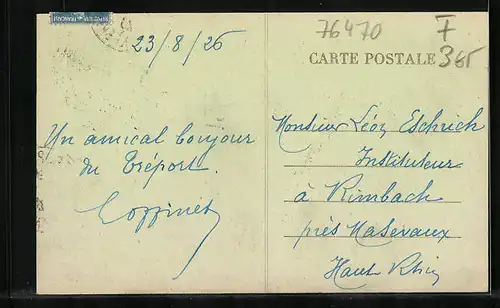 REPUBLIQUE FRANCAISE
76470
F
365
23/8/26
CARTE POSTALE
Monsieur Léon Eschrich
Instituteur
à Rimbach
près Masevaux
Haut Rhin
Un amical bonjour
du Tréport.
Coppinet